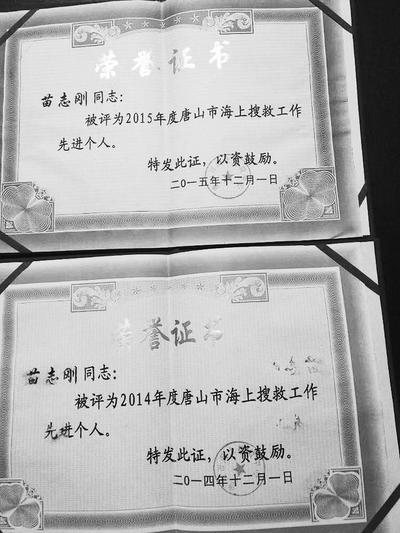 荣誉证书
苗志刚同志：
被评为2015年度唐山市海上搜救工作
先进个人。
特发此证，以资鼓励。
二〇一五年十二月一日
荣誉证书
苗志刚同志：
被评为2014年度唐山市海上搜救工作
先进个人。
特发此证，以资鼓励。
二〇一四年十二月一日